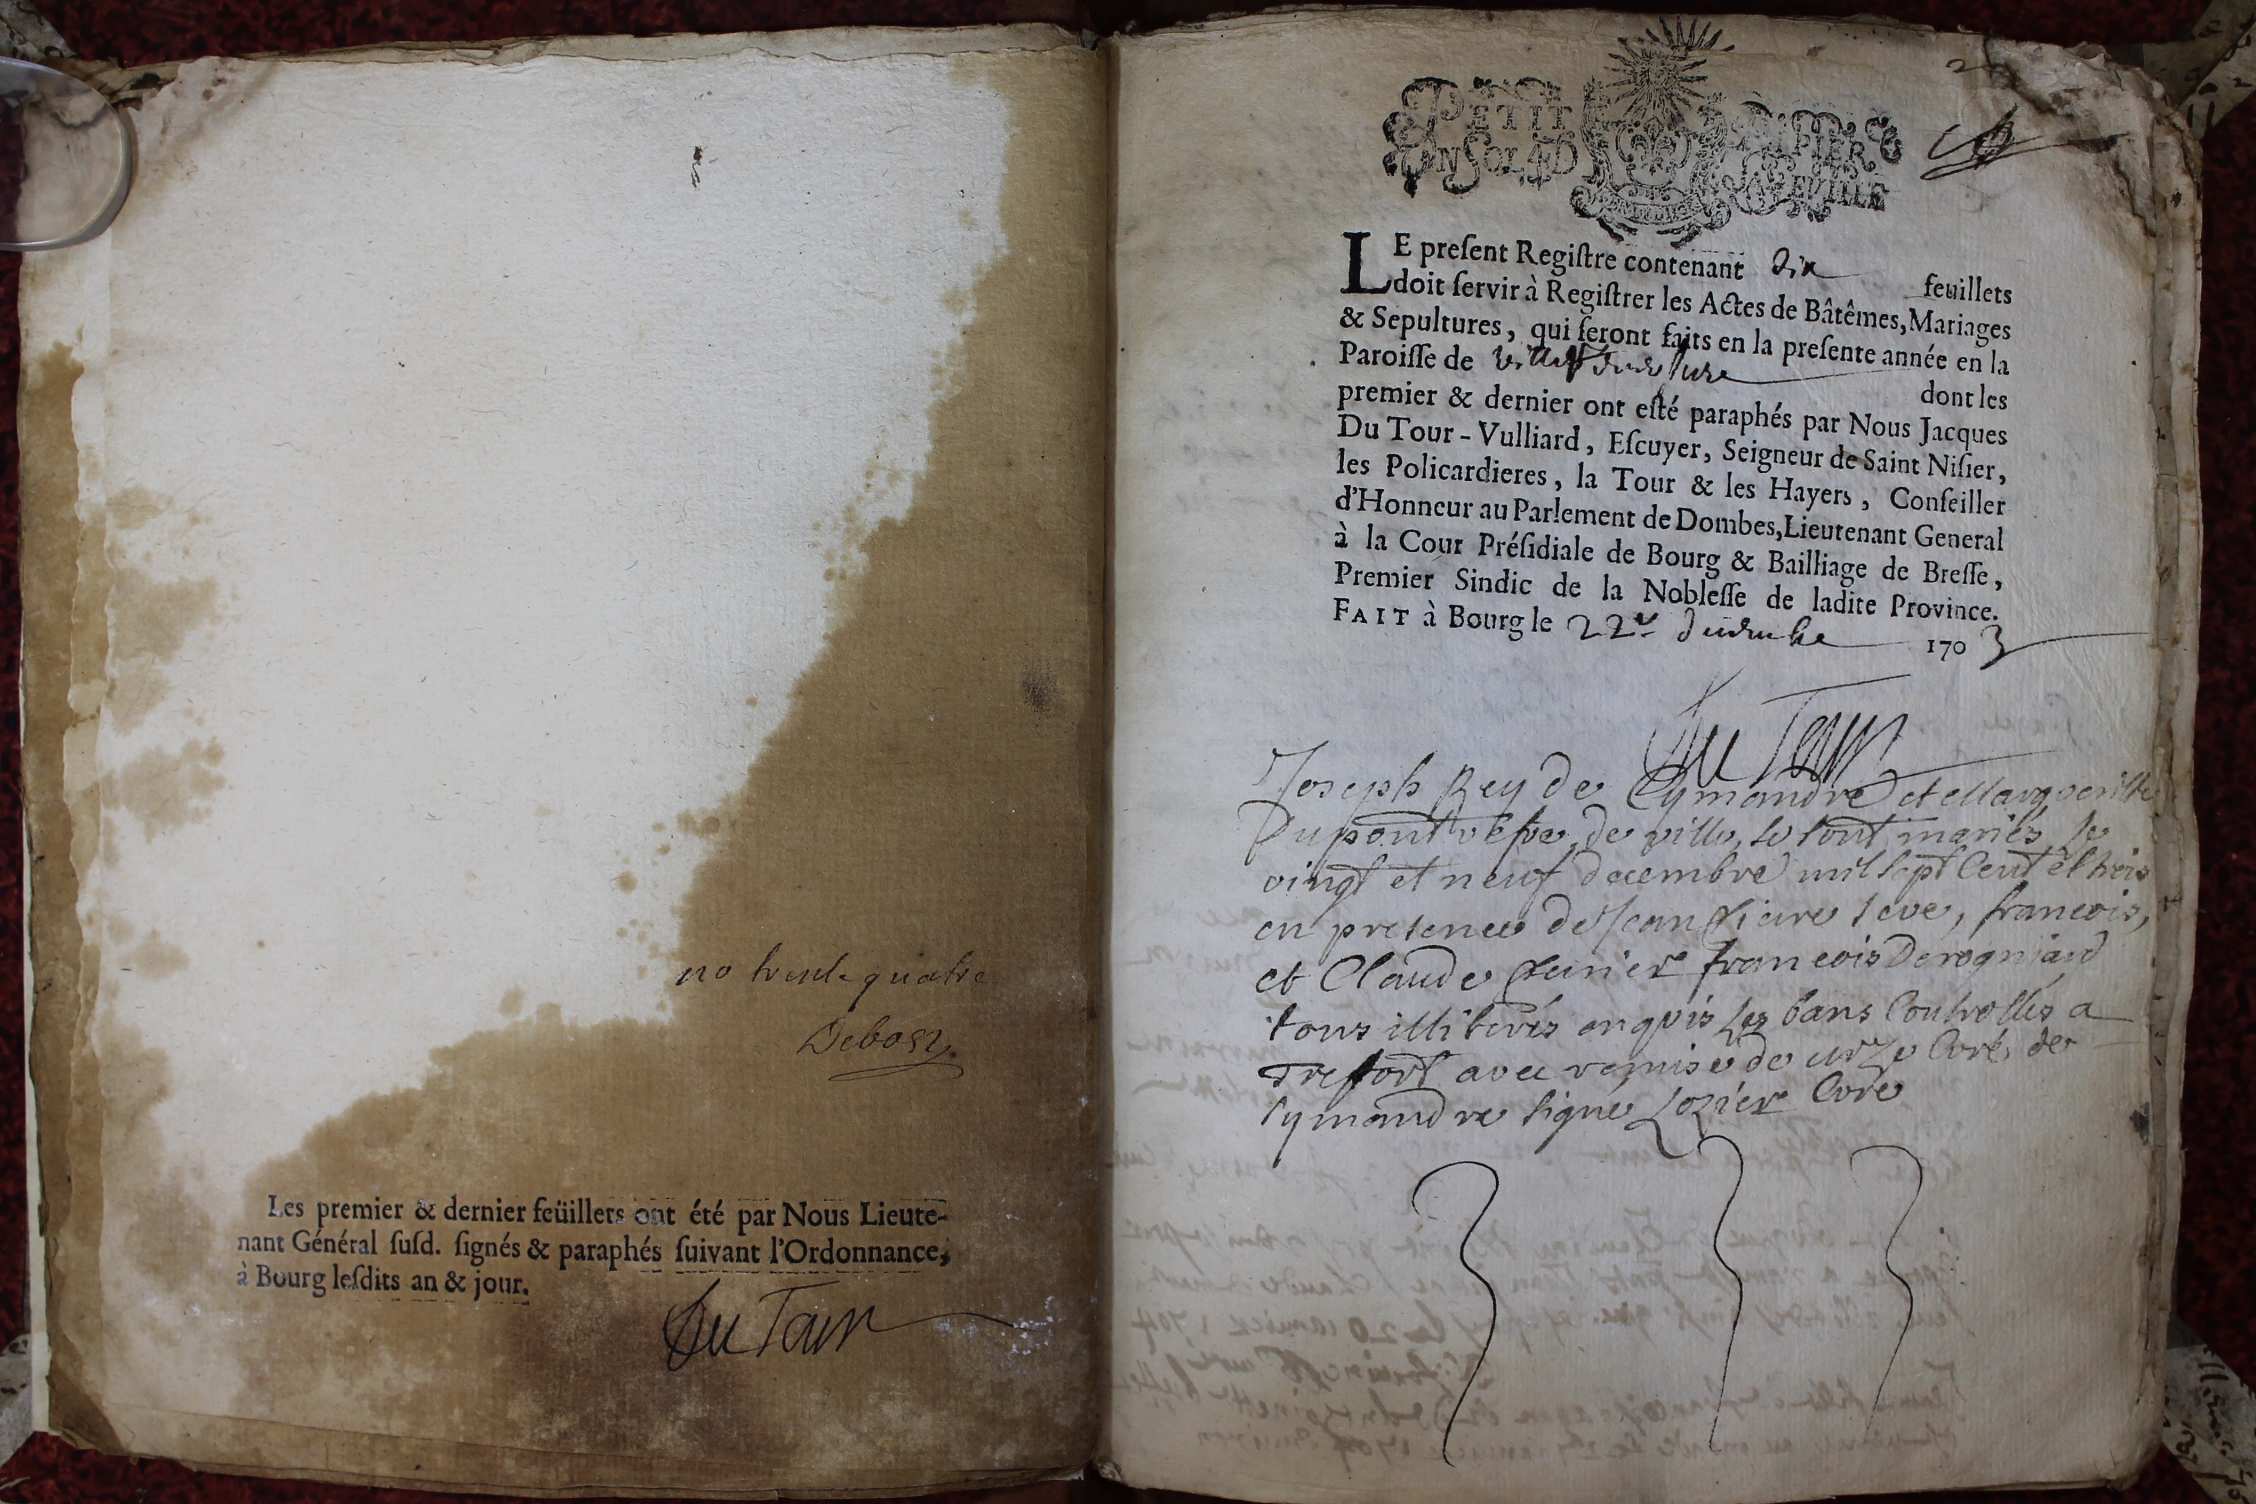 no trente quatre
Debost
Les premier & dernier feüillets ont été par Nous Lieute-
nant Général ſuſd. ſignés & paraphés ſuivant l'Ordonnance,
à Bourg leſdits an & jour.
Du Tour
2
PETIT PAPIER
UN SOL 4 D LA FEUILLE
LE preſent Regiſtre contenant dix feuillets
doit ſervir à Regiſtrer les Actes de Bâtêmes, Mariages
& Sepultures, qui ſeront faits en la preſente année en la
Paroiſſe de dont les
premier & dernier ont eſté paraphés par Nous Jacques
Du Tour-Vulliard, Eſcuyer, Seigneur de Saint Niſier,
les Policardieres, la Tour & les Hayers, Conſeiller
d'Honneur au Parlement de Dombes, Lieutenant General
à la Cour Préſidiale de Bourg & Bailliage de Breſſe,
Premier Sindic de la Nobleſſe de ladite Province.
FAIT à Bourg le 22e decembre 1703
Du Tour
Joseph Rey de Symandre et Margueritte
Dupont veſve de ville, se sont mariés le
vingt et neuf decembre mil sept Cent et trois
en presence de Jean seve, francois,
et Claude francois Derogniard
tous illiterés les bans Controllés a
Treffort avec remise de Curé de
symandre signé Lozier Curé